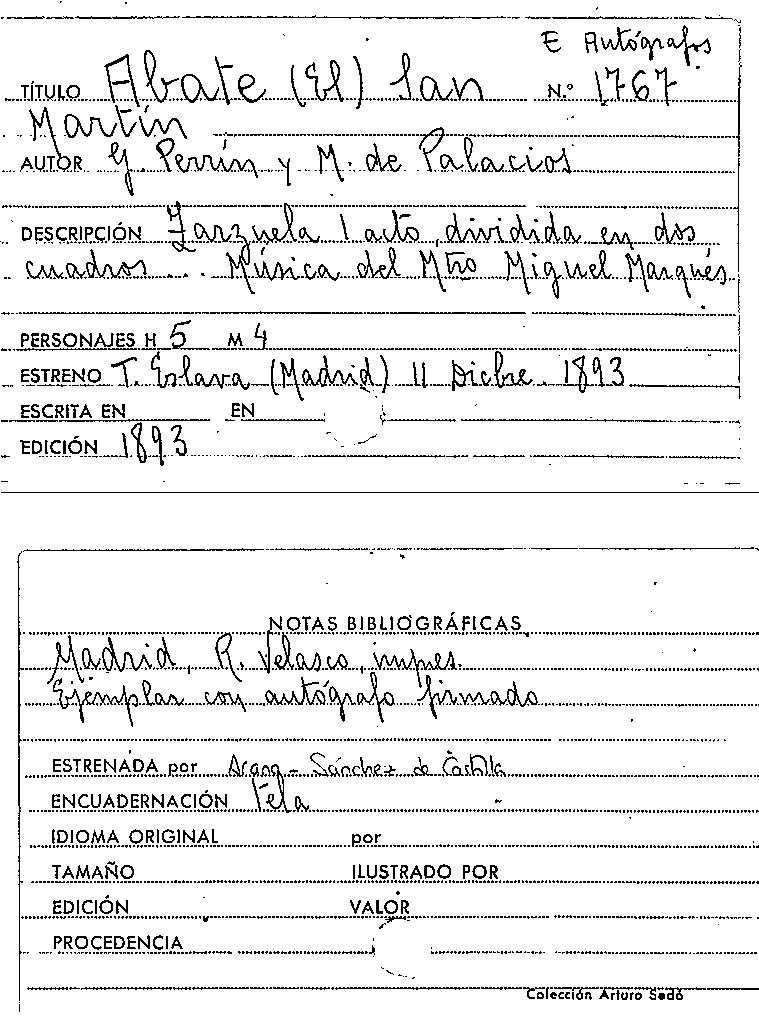 E Autógrafos
TÍTULO Abate (El) San N.º 1767
Martín
AUTOR G. Perrín y M. de Palacios
DESCRIPCIÓN Zarzuela 1 acto, dividida en dos
cuadros... Música del Mtro Miguel Marqués.
PERSONAJES H 5 M 4
ESTRENO T. Eslava (Madrid) 11 Dicbre. 1893
ESCRITA EN EN
EDICIÓN 1893
NOTAS BIBLIOGRÁFICAS
Madrid, R. Velasco, impres.
Ejemplar con autógrafo firmado
ESTRENADA por Arana - Sánchez de Castilla
ENCUADERNACIÓN Tela
IDIOMA ORIGINAL por
TAMAÑO ILUSTRADO POR
EDICIÓN VALOR
PROCEDENCIA
Colección Arturo Sedó